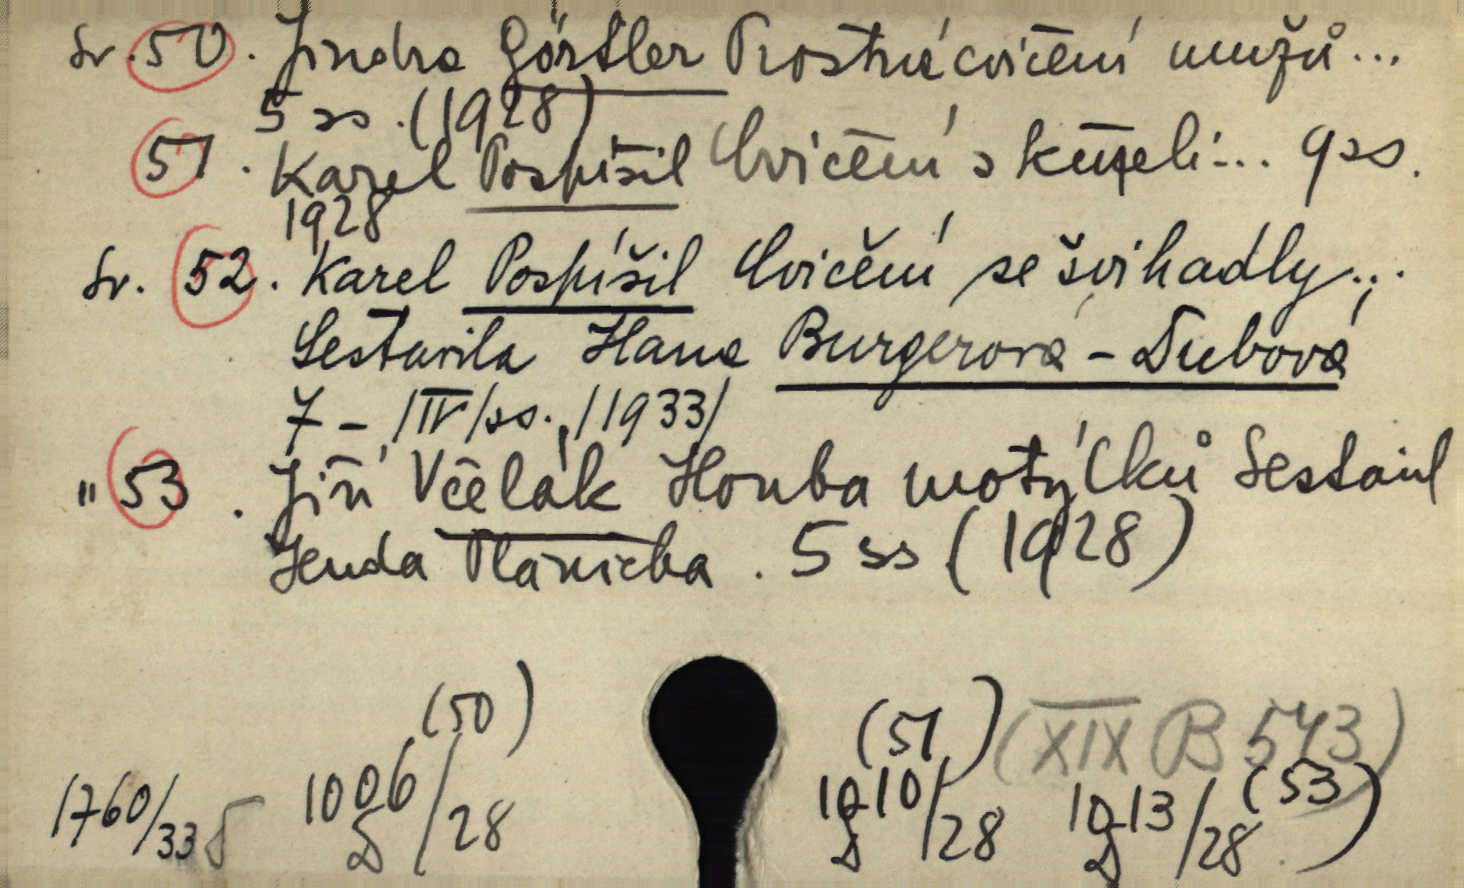 Sv. 50. Jindra Görtler Prostná cvičení mužů...
5 ss. (1928)
51. Karel Pospíšil Cvičení s kuželi... 9 ss.
1928
Sv. 52. Karel Pospíšil Cvičení se švihadly...
Sestavila Hana Burgerová - Dubová
7 - /IV/ ss., /1933/
" 53. Jiří Včelák Honba motýlků Sestavil
Jenda Plánička. 5 ss (1928)
(50) (51) (XIX B 573)
1760/33 1006/28 D 1010/28 D 1013/28 D (53)